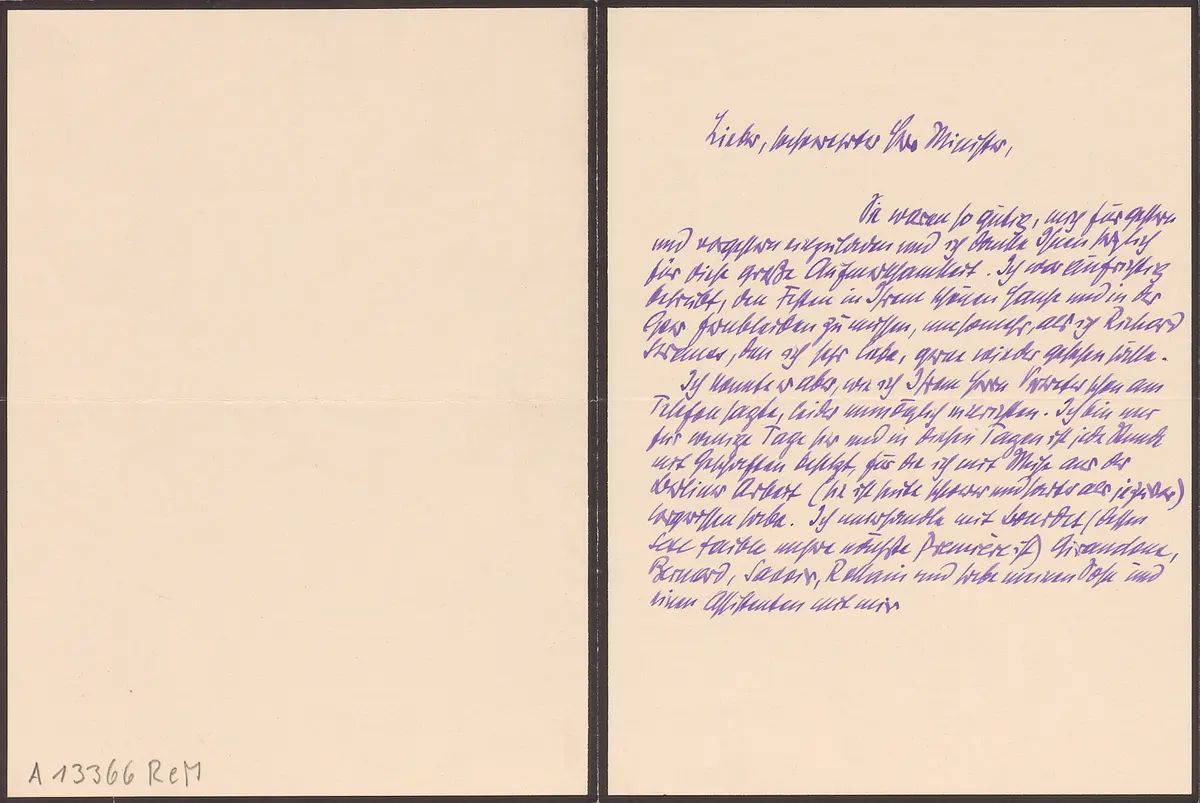 Lieber, sehrverehrter Herr Minister,
Sie waren so gütig, mich für gestern
und vorgestern einzuladen und ich danke Ihnen herzlich
für diese große Aufmerksamkeit. Ich war aufrichtig
betrübt, den Festen in Ihrem schönen Hause und in der
Oper fernbleiben zu müssen, umsomehr, als ich Richard
Strauss, den ich sehr liebe, gerne wieder gesehen hätte.
Ich konnte es aber, wie ich Ihrem Herrn Vertreter schon am
Telefon sagte, leider unmöglich einrichten. Ich bin nur
für wenige Tage hier und in diesen Tagen ist jede Stunde
mit Geschäften besetzt, für die ich mit Mühe aus der
Berliner Arbeit (sie ist heute schwerer und härter als je zuvor)
losgerissen habe. Ich unterhandle mit Bourdet (dessen
Sexe faible unsre nächste Première ist) Giraudoux,
Bernard, Savoir, Rolland und habe meinen Sohn und
einen Assistenten mit mir
A 13366 ReM